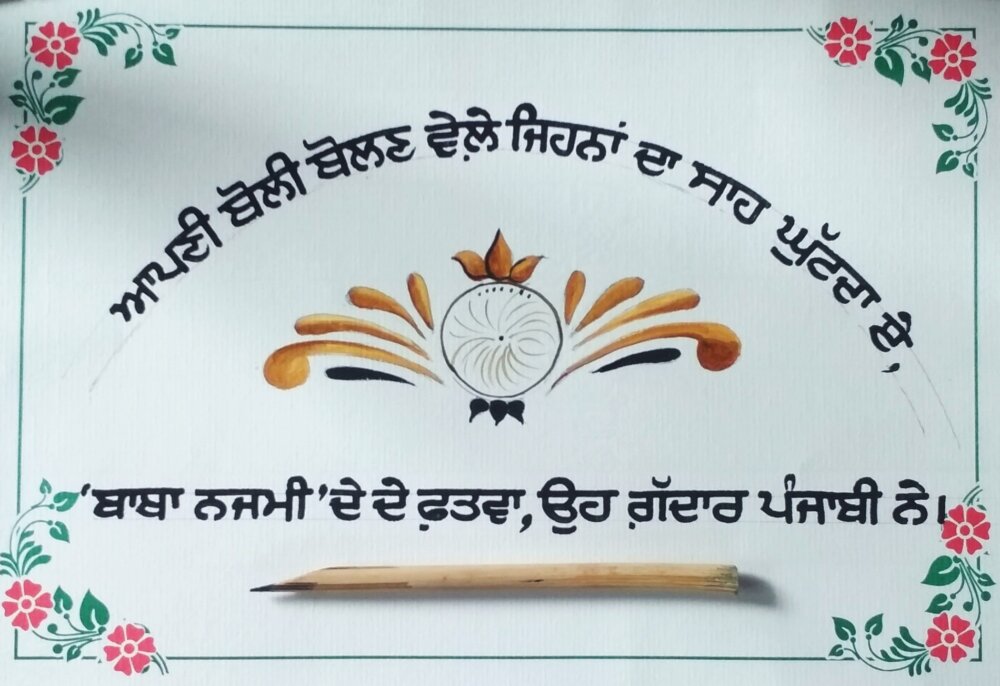 ਆਪਣੀ ਬੋਲੀ ਬੋਲਣ ਵੇਲ਼ੇ ਜਿਹਨਾਂ ਦਾ ਸਾਹ ਘੁੱਟਦਾ ਏ,
‘ਬਾਬਾ ਨਜਮੀ’ ਦੇ ਦੇ ਫ਼ਤਵਾ, ਉਹ ਗ਼ੱਦਾਰ ਪੰਜਾਬੀ ਨੇ।